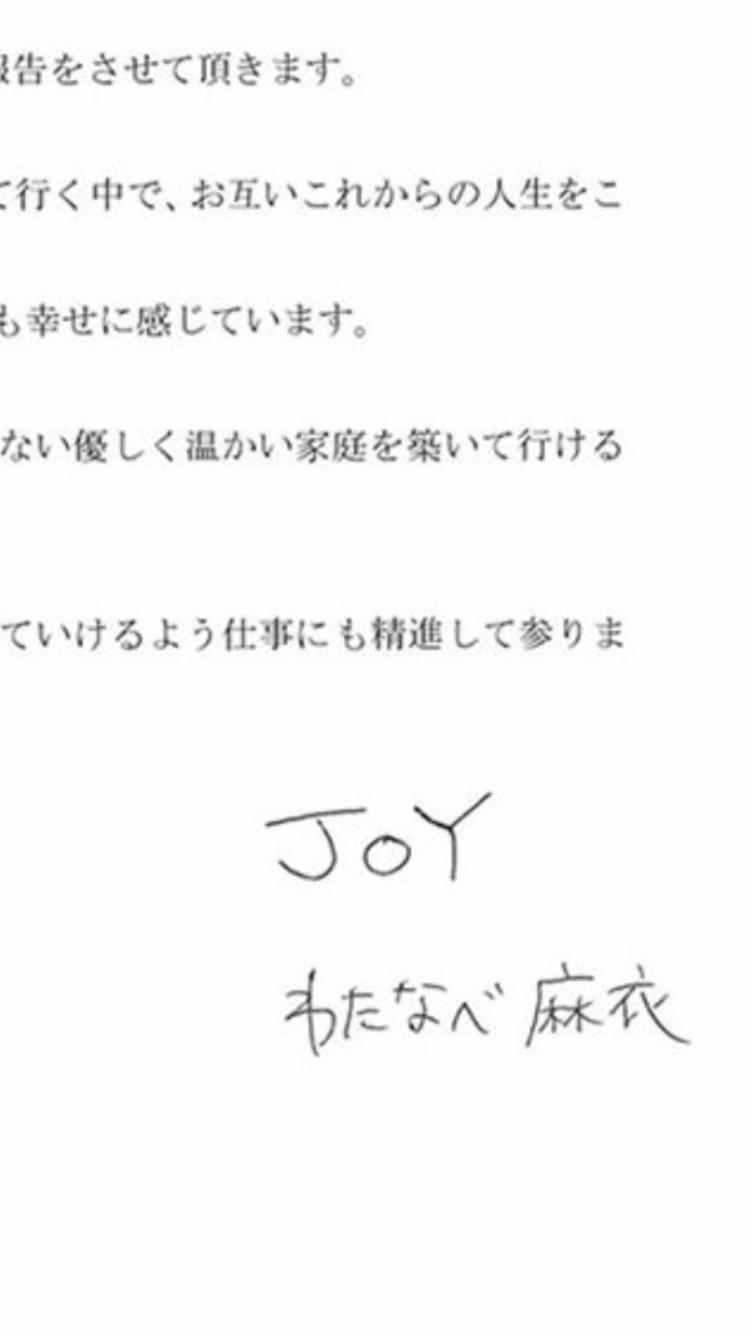 報告をさせて頂きます。
て行く中で、お互いこれからの人生をこ
も幸せに感じています。
ない優しく温かい家庭を築いて行ける
ていけるよう仕事にも精進して参りま
JOY
わたなべ麻衣